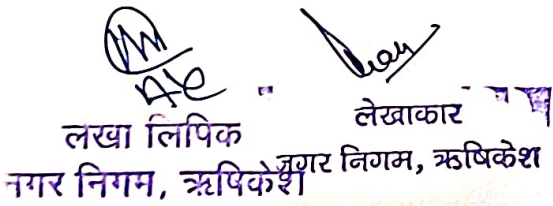 लखा लिपिक
नगर निगम, ऋषिकेश
लेखाकार
नगर निगम, ऋषिकेश